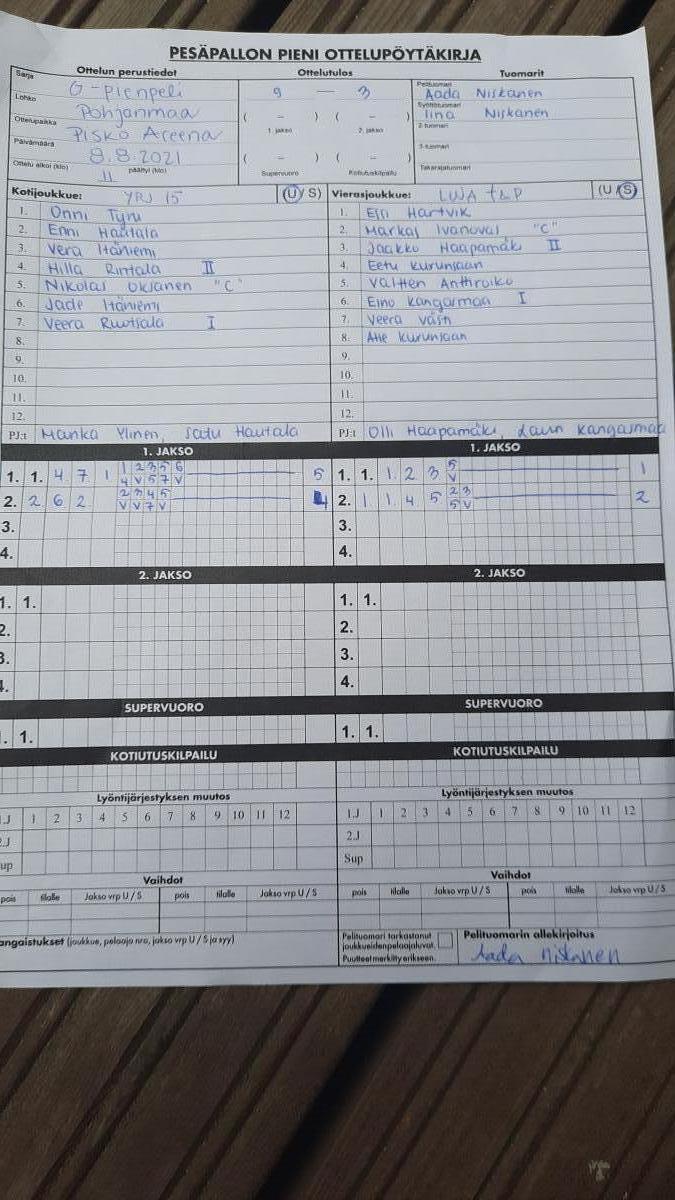 PESÄPALLON PIENI OTTELUPÖYTÄKIRJA
Ottelun perustiedot
Ottelutulos
Tuomarit
Sarja G-pienpeli
Lohko Pohjanmaa
Ottelupaikka Pisko Areena
Päivämäärä 8.8.2021
Ottelu alkoi (klo) 11 päättyi (klo)
9 — 3
( – ) ( – )
1. jakso 2. jakso
( – ) ( – )
Supervuoro Kotiutuskilpailu
Pelituomari Aada Niskanen
Syöttötuomari Iina Niskanen
2-tuomari
3-tuomari
Takarajatuomari
Kotijoukkue: YRJ 15 (U/ S)
1. Onni Tynı
2. Enni Hautala
3. Vera Itäniemi
4. Hilla Rintala II
5. Nikolas Oksanen "C"
6. Jade Itäniemi
7. Veera Ruotsala I
8.
9.
10.
11.
12.
PJ:t Manka Ylinen, Satu Hautala
Vierasjoukkue: (U/S)
1. Hartvik
2. Ivanoval "C"
3. Jaakko Haapamäki II
4. Eetu Kurunsaari
5. Valtteri
6. Eino Kangasmaa I
7. Veera
8. Atte Kurunsaari
9.
10.
11.
12.
PJ:t Olli Haapamäki, Lauri Kangasmaa
1. JAKSO
1. 1. 4 7 1 1 2 3 5 6 5
4 V 5 7 V
2. 2 6 2 2 3 4 5 4
V V 7 V
3.
4.
1. JAKSO
1. 1. 1 2 3 5 1
V
2. 1 1 4 5 2 3 2
5 V
3.
4.
2. JAKSO
1. 1.
2.
3.
4.
2. JAKSO
1. 1.
2.
3.
4.
SUPERVUORO
1. 1.
SUPERVUORO
1. 1.
KOTIUTUSKILPAILU
KOTIUTUSKILPAILU
Lyöntijärjestyksen muutos
1.J 1 2 3 4 5 6 7 8 9 10 11 12
2.J
Sup
Lyöntijärjestyksen muutos
1.J 1 2 3 4 5 6 7 8 9 10 11 12
2.J
Sup
Vaihdot
pois tilalle Jakso vrp U / S pois tilalle Jakso vrp U / S
Vaihdot
pois tilalle Jakso vrp U / S pois tilalle Jakso vrp U / S
angaistukset (joukkue, pelaaja nro, jakso vrp U / S ja syy)
Pelituomari tarkastanut
joukkueidenpelaajaluvat.
Puutteet merkitty erikseen.
Pelituomarin allekirjoitus
Aada Niskanen